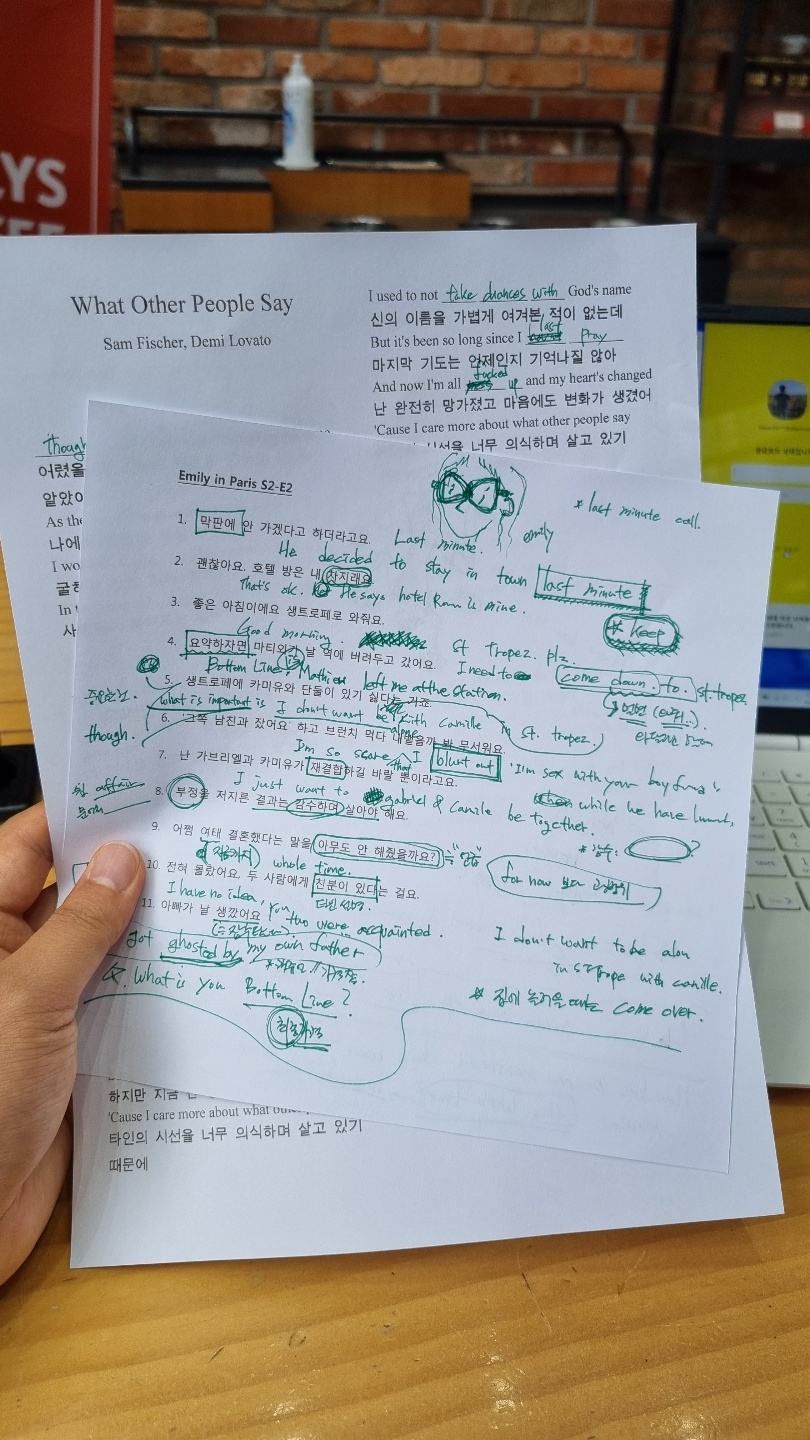 What Other People Say
Sam Fischer, Demi Lovato
I used to not take chances with God's name
신의 이름을 가볍게 여겨본 적이 없는데
But it's been so long since I last pray
마지막 기도는 언제인지 기억나질 않아
And now I'm all fucked up and my heart's changed
난 완전히 망가졌고 마음에도 변화가 생겼어
'Cause I care more about what other people say
시선을 너무 의식하며 살고 있기
어렸을
알았
As the
나에
I wo
굴하
In
사
Emily in Paris S2-E2
emily
* last minute call.
1. 막판에 안 가겠다고 하더라고요. Last minute.
He decided to stay in town last minute
2. 괜찮아요. 호텔 방은 내 차지래요
That's ok. He says hotel Room is mine.
* keep
3. 좋은 아침이에요 생트로페로 와줘요.
Good morning. St Tropez. plz.
I need to come down to st.tropez
4. 요약하자면 마티외가 날 역에 버려두고 갔어요.
Bottom Line: Mathieu left me at the Station.
5. 생트로페에 카미유와 단둘이 있기 싫다는 거죠.
what is important is I don't want be alone with Camille in st. tropez.
though.
6. 그쪽 남친과 잤어요' 하고 브런치 먹다 내뱉을까 봐 무서워요.
I'm so scare that I blurt out 'I'm sex with your boyfriend'
while we have lunch,
7. 난 가브리엘과 카미유가 재결합하길 바랄 뿐이라고요.
I just want to gabriel & Camile be together.
8. 부정을 저지른 결과는 감수하며 살아야 해요.
affair
* 감수:
9. 어쩜 여태 결혼했다는 말을 아무도 안 해줬을까요?
whole time.
for now 보다
10. 전혀 몰랐어요. 두 사람에게 친분이 있다는 걸요.
I have no idea, you two were acquainted.
11. 아빠가 날 생깠어요
got ghosted by my own father
Q. What is you Bottom Line?
I don't want to be alon
in st Trope with camille.
* 집에 놀러올 때는 come over.
하지만 지금
'Cause I care more about what
타인의 시선을 너무 의식하며 살고 있기
때문에